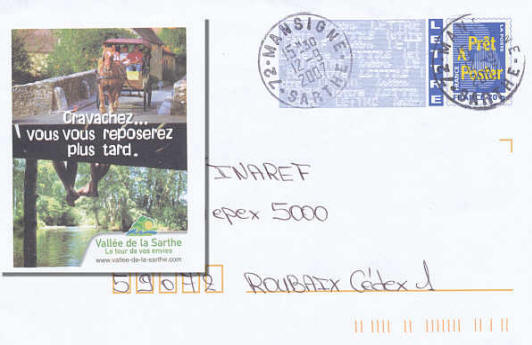 72-MANSIGNÉ
15H30
12-9
2007
SARTHE
LETTRE
Prêt
à
Poster
FRANCE
LA POSTE
Cravachez...
vous vous reposerez
plus tard.
INAREF
epex 5000
Vallée de la Sarthe
Le tour de vos envies
www.vallee-de-la-sarthe.com
59072 ROUBAIX Cédex 1